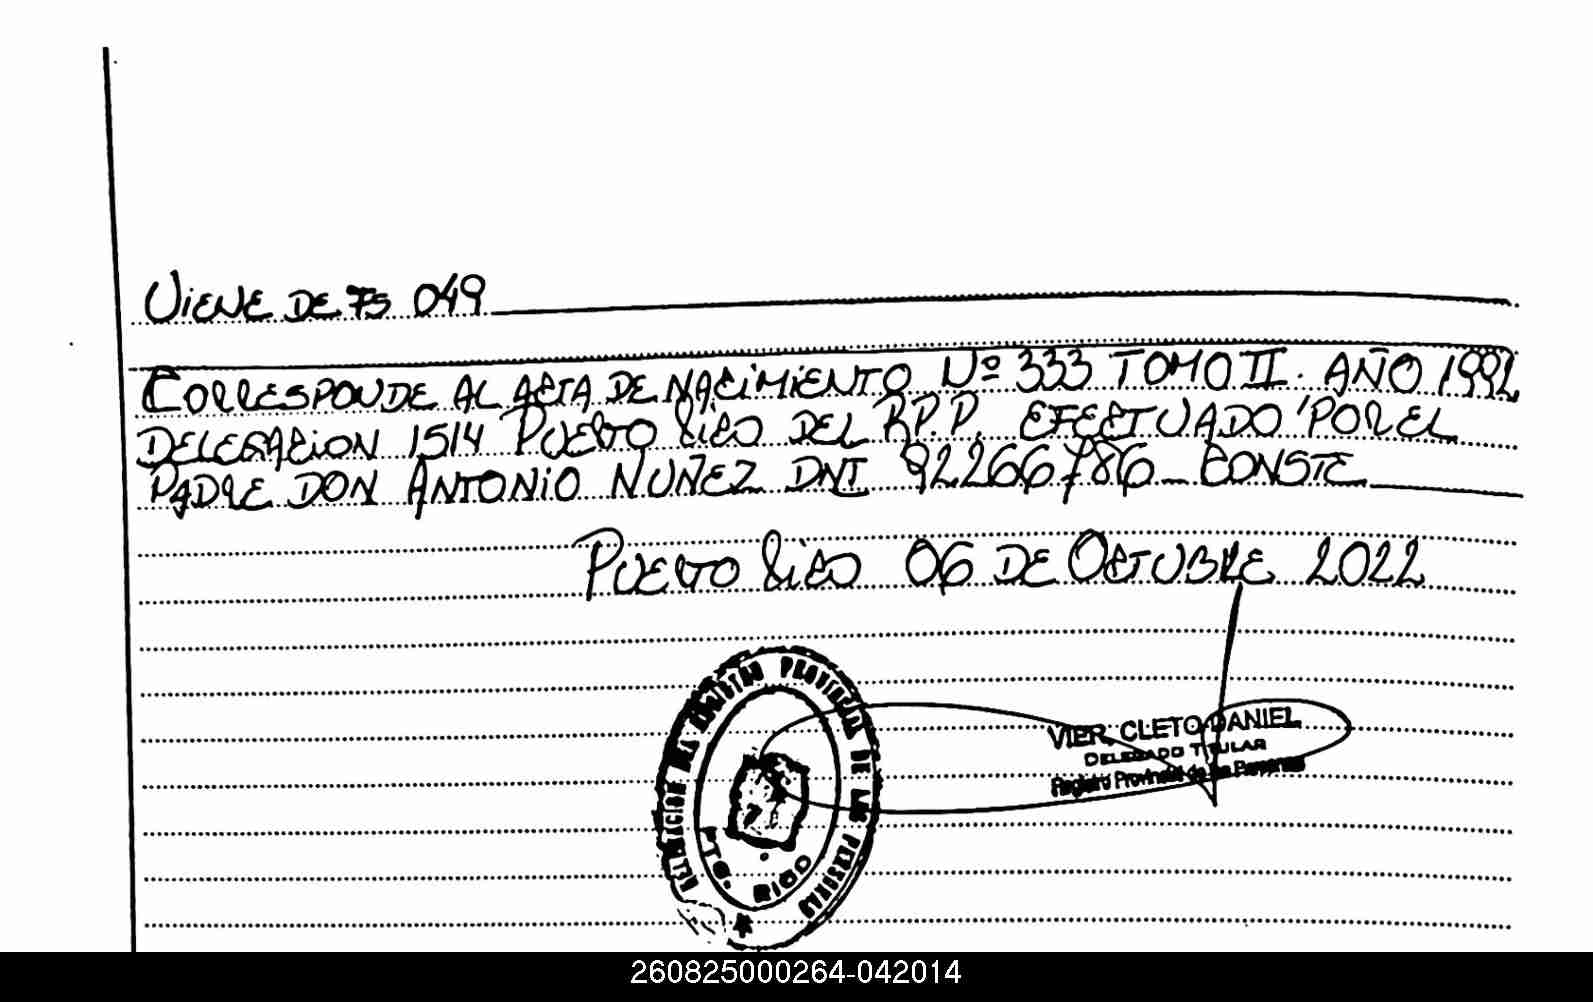 VIENE DE FS 049
CORRESPONDE AL ACTA DE NACIMIENTO Nº 333 TOMO II. AÑO 1992
DELEGACION 1514 PUERTO RICO DEL R.P.P. EFECTUADO POR EL
PADRE DON ANTONIO NUÑEZ DNI 92266786 CONSTE
PUERTO RICO 06 DE OCTUBRE 2022
DELEGACION DEL REGISTRO PROVINCIAL DE LAS PERSONAS
PTO. RICO
VIER, CLETO DANIEL
DELEGADO TITULAR
Registro Provincial de las Personas
260825000264-042014